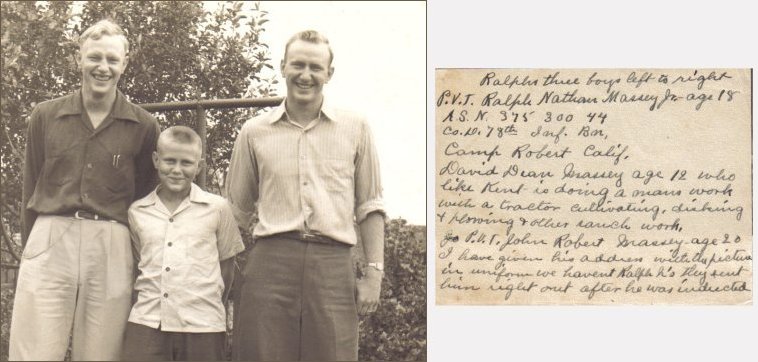 Ralphs three boys left to right
P.V.T. Ralph Nathan Massey Jr age 18
A.S.N. 375 300 44
Co. D. 78th Inf. Bn,
Camp Robert Calif.
David Dean Massey age 12 who
like Kent is doing a mans work
with a tractor cultivating, disking
& plowing & other ranch work,
P.V.T. John Robert Massey age 20
I have given his address with the picture
in uniform we havent Ralph Jr's they sent
him right out after he was inducted